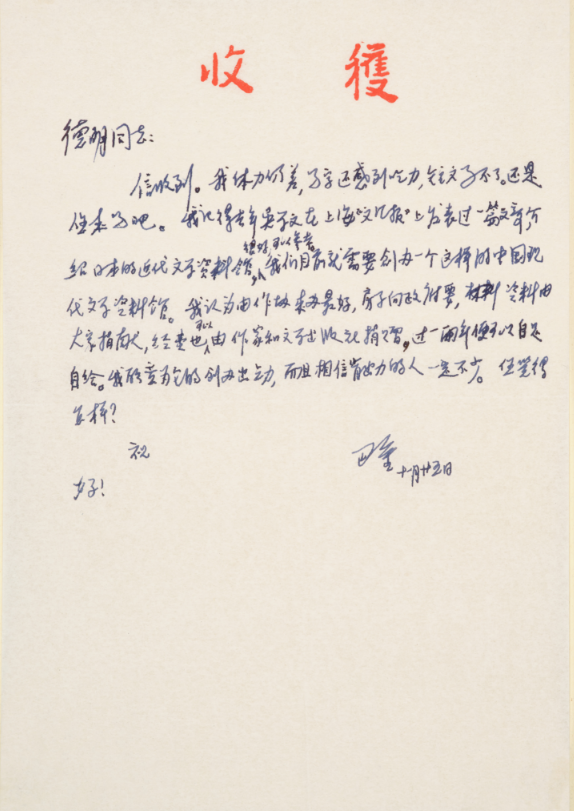 收穫
德明同志:
信收到。我体力仍差,写字还感到吃力,文章写不了。还是
你来写吧。我记得去年在上海“文汇报”上发表过一篇文章介
绍日本的近代文学资料馆,绝对可以参考,我们目前就需要创办一个这样的中国现
代文学资料馆。我认为由作协来办最好,房子向政府要,资料由
大家捐献,经费也可以由作家和文学出版社捐赠,过一两年便可以自足
自给。我的创办出力,而且相信肯出力的人一定不少。你觉得
怎样?
祝
好!
巴金 十一月廿五日